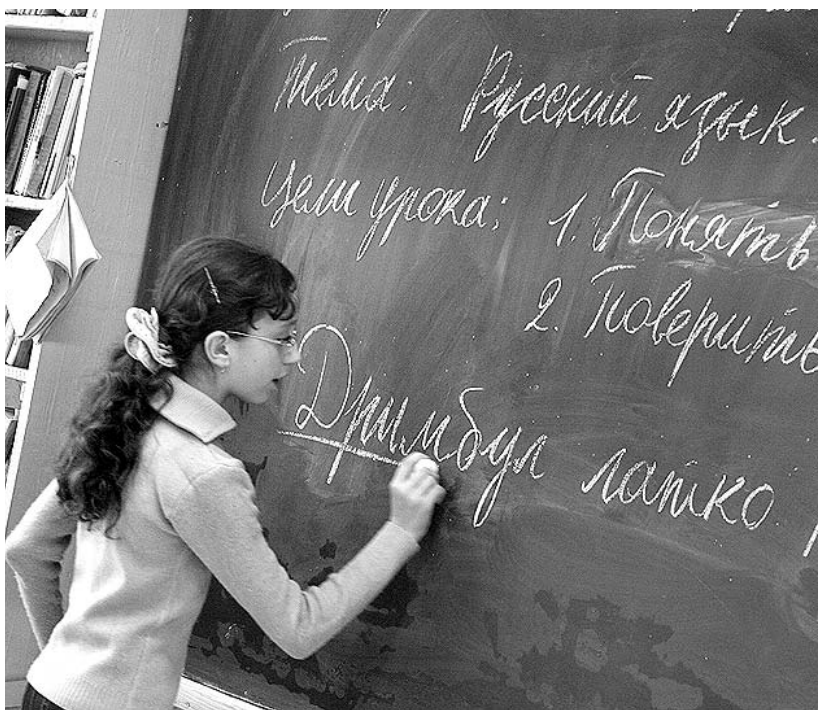 Тема: Русский язык.
Цели урока: 1. Понять
2. Поверить
Дримбул латко